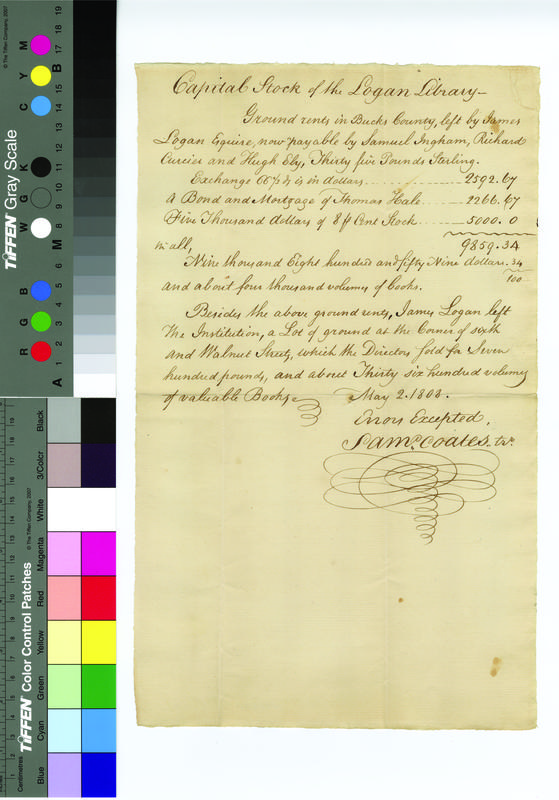 Capital Stock of the Logan Library —
Ground rents in Bucks County, left by James
Logan Esquire, now payable by Samuel Ingham, Richard
and Hugh Ely, Thirty five Pounds Sterling.
Exchange 66⅔ is in dollars 2592.67
A Bond and Mortgage of Thomas Hale 2266.67
Five Thousand dollars of 8 ⅌ Cent Stock 5000.0
in all, 9859.34
Nine thousand Eight hundred and fifty Nine dollars 34/100
and about four thousand volumes of books.
Besides the above ground rents, James Logan left
The Institution, a Lot of ground at the Corner of sixth
and Walnut Street, which the Directors sold for Seven
hundred pounds, and about Thirty six hundred volumes
of valuable Books. May 2. 1803.
Errors Excepted,
Saml. Coates, tr.
TIFFEN Gray Scale
© The Tiffen Company, 2007
R G B W G K C Y M
A 1 2 3 4 5 6 M 8 9 10 11 12 13 14 15 B 17 18 19
TIFFEN Color Control Patches
© The Tiffen Company, 2007
Centimetres
Blue
Cyan
Green
Yellow
Red
Magenta
White
3/Color
Black